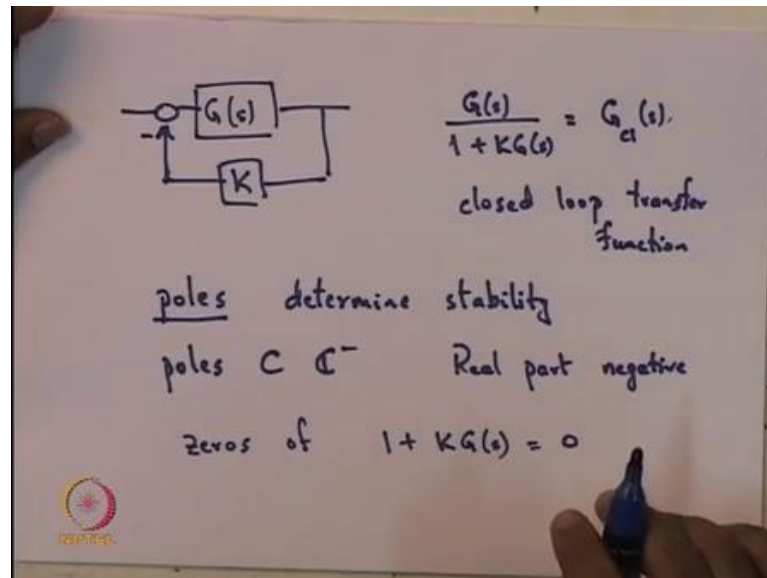 G(s)
-
K
G(s) / 1 + KG(s) = G_cl(s).
closed loop transfer
function
poles determine stability
poles ⊂ ℂ⁻ Real part negative
zeros of 1 + KG(s) = 0
NPTEL